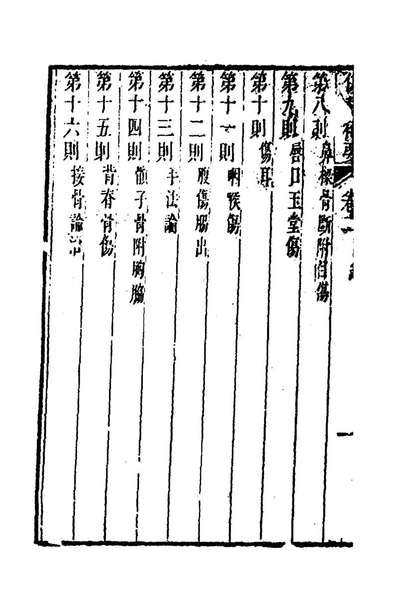 第八則 鼻梁骨斷附自傷
第九則 唇口玉堂傷
第十則 傷耳
第十一則 咽喉傷
第十二則 腹傷腸出
第十三則 手法論
第十四則 骨附胸脇
第十五則 背脊骨傷
第十六則 接骨論